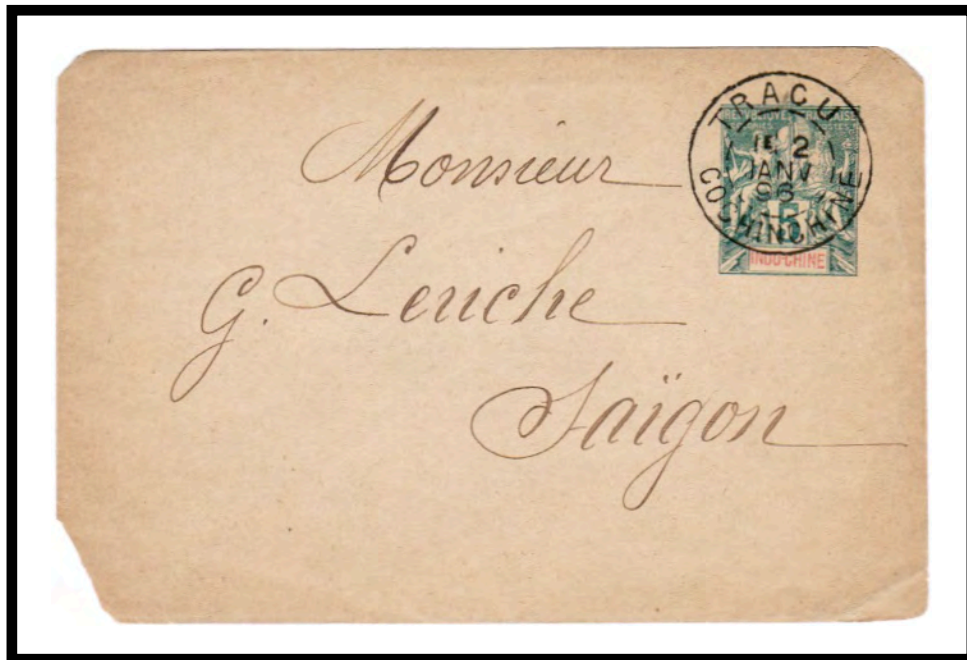 Monsieur
G. Leriche
Saïgon
TRACU
1E 2
JANV
96
COCHINCHINE
REPUBLIQUE FRANCAISE
5
INDO-CHINE